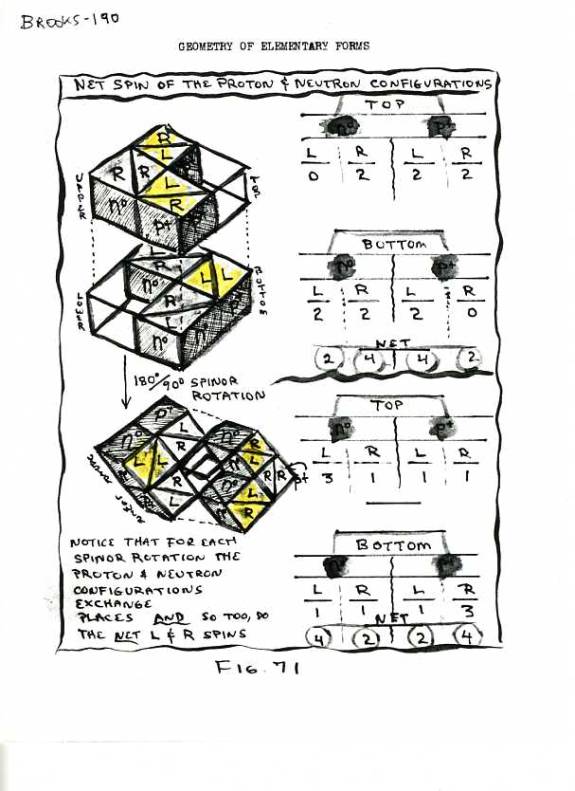 BROOKS-190
GEOMETRY OF ELEMENTARY FORMS
NET SPIN OF THE PROTON & NEUTRON CONFIGURATIONS
TOP
n° p+
L R L R
0 2 2 2
BOTTOM
n° p+
L R L R
2 2 2 0
NET
2 4 4 2
UPPER
TOP
R
L
R R L
R
n° p+ p+
LOWER
BOTTOM
L
R
n° L L
R
L
n°
180°/90° SPINOR
ROTATION
TOP
n° p+
L R L R
3 1 1 1
BOTTOM
n° p+
L R L R
1 1 1 3
NET
4 2 2 4
p+
n° L n° R
R L
L L R R
n° L
L R
NOTICE THAT FOR EACH
SPINOR ROTATION THE
PROTON & NEUTRON
CONFIGURATIONS
EXCHANGE
PLACES AND SO TOO, DO
THE NET L & R SPINS
FIG. 71